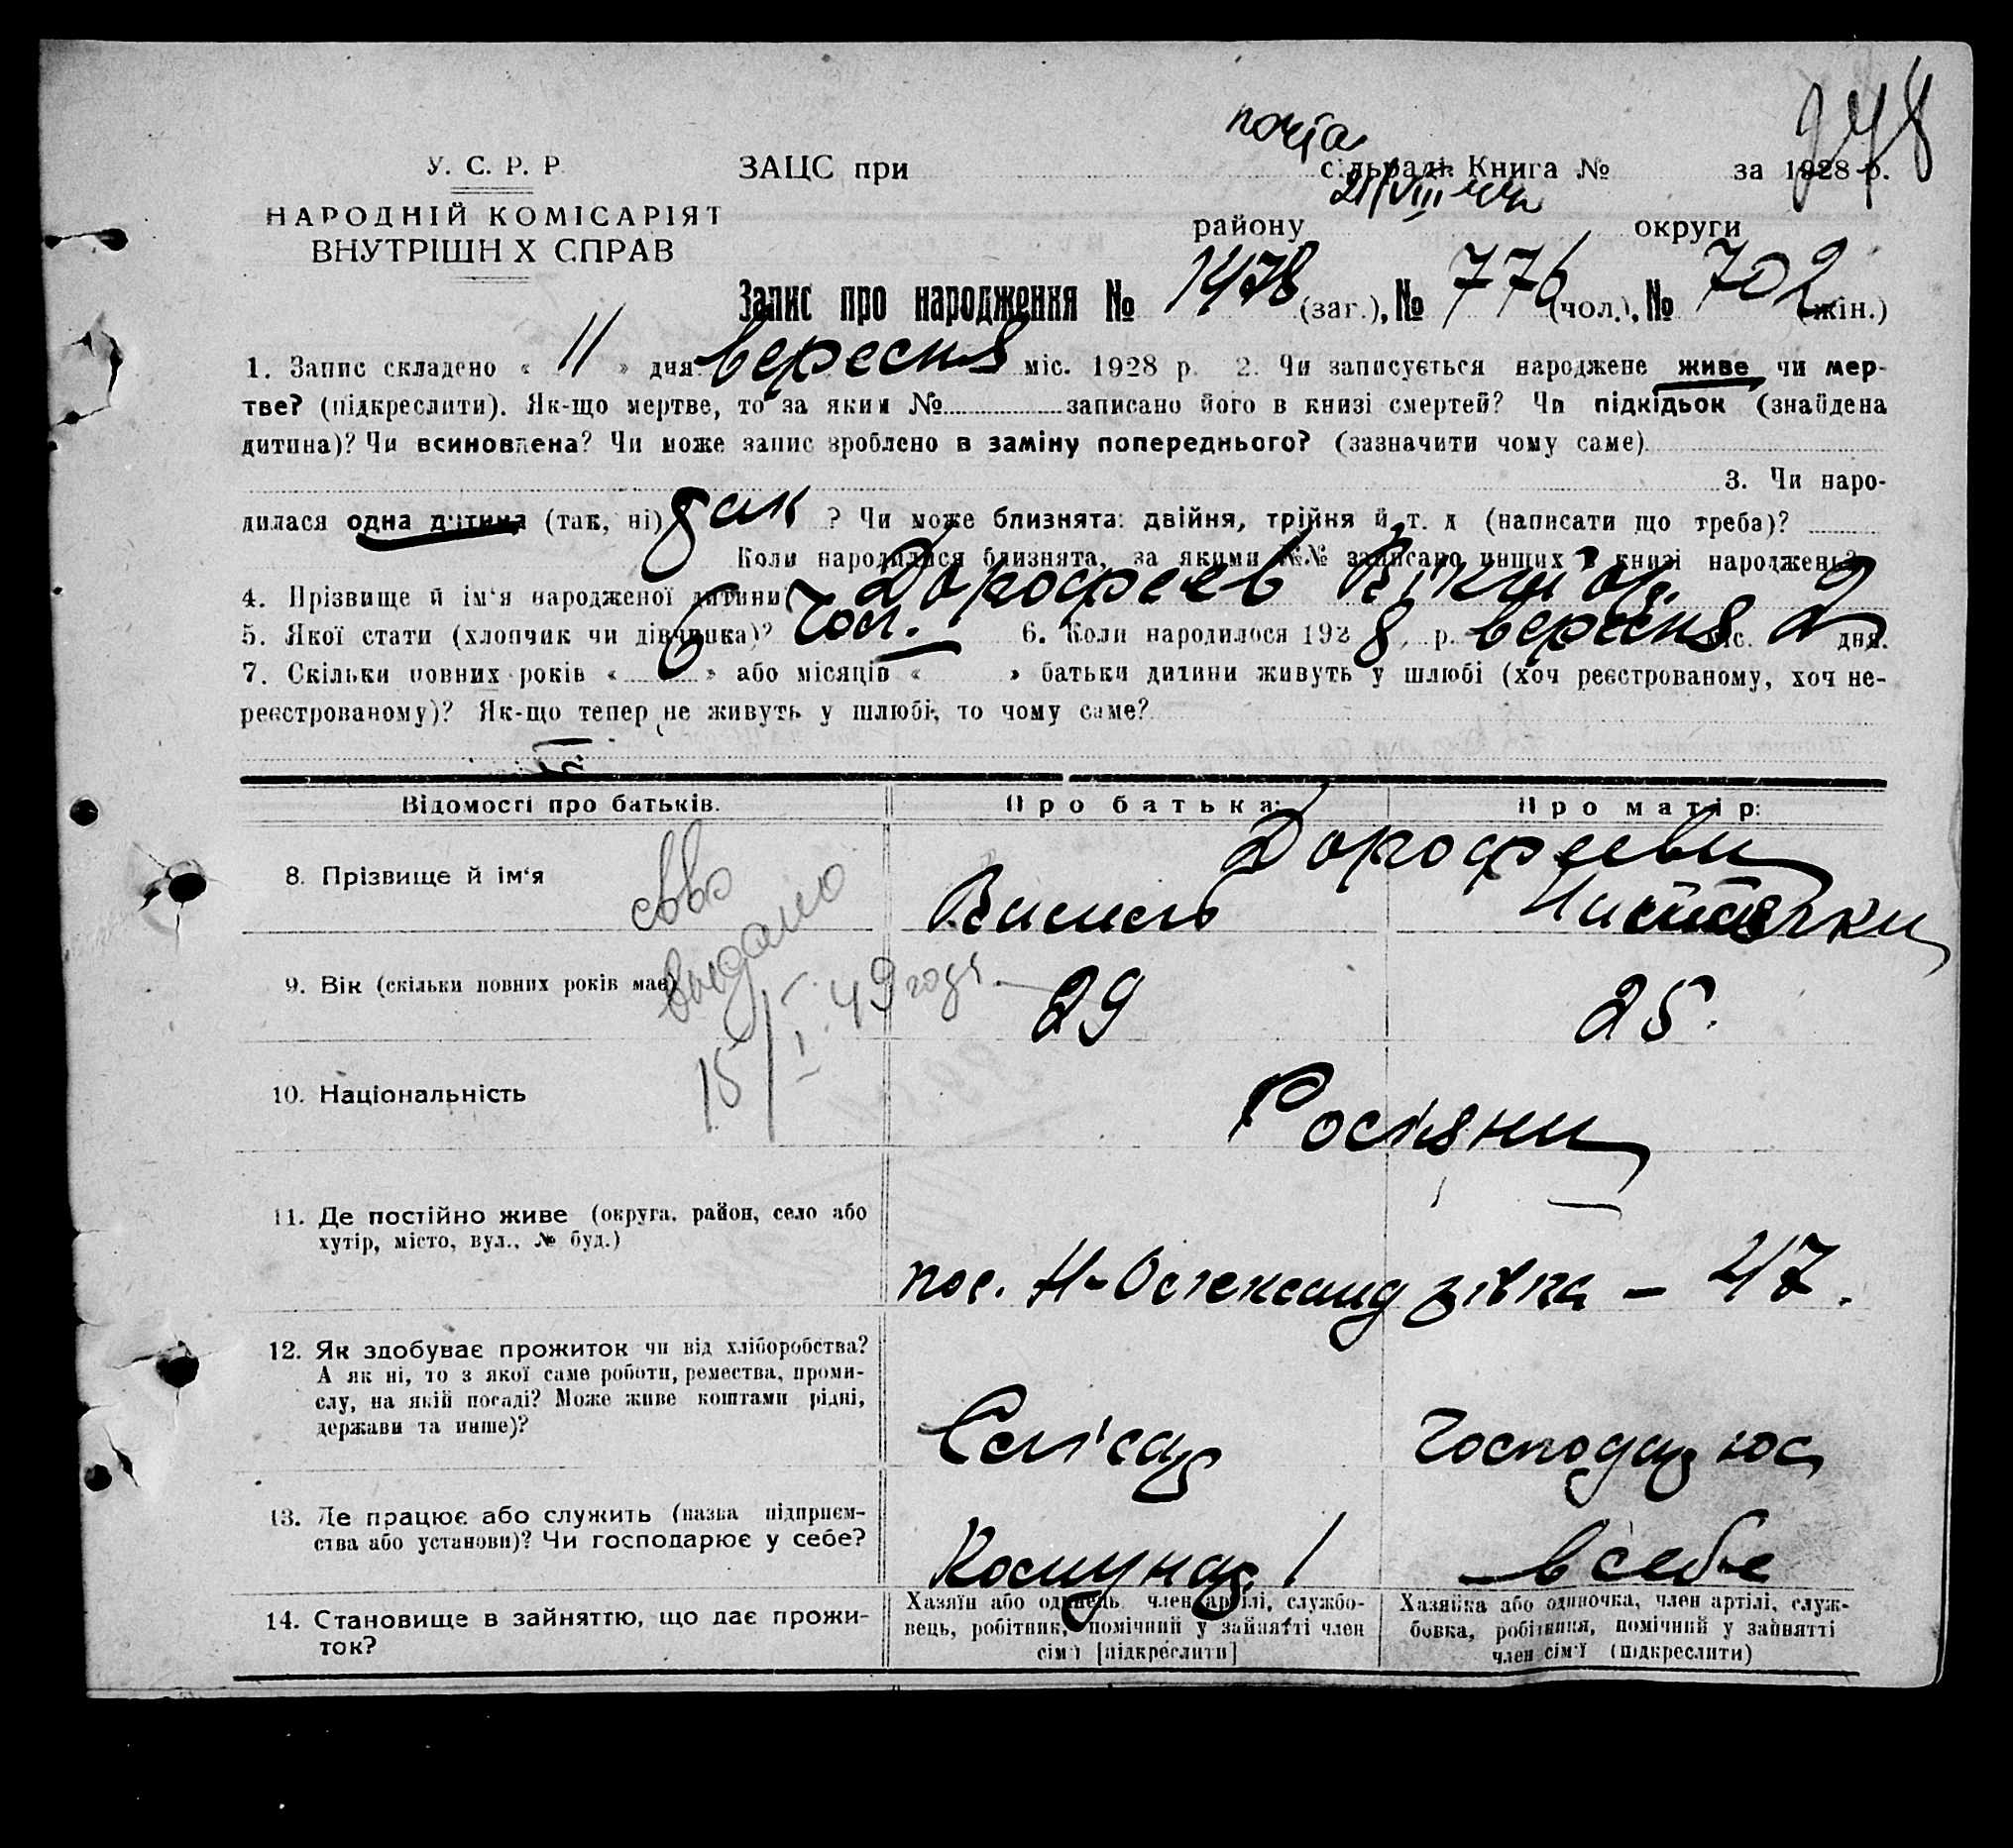 978
копія
У. С. Р. Р
ЗАЦС при сільраді. Книга № за 1928 р.
21/VIII
НАРОДНІЙ КОМІСАРІЯТ
ВНУТРІШН Х СПРАВ
району округи
Запис про народження № 1478 (заг.), № 776 (чол.), № 702 (жін.)
1. Запис складено « 11 » дня вересня міс. 1928 р. 2. Чи записується народжене живе чи мер-
тве? (підкреслити). Як-що мертве, то за яким № записано його в книзі смертей? Чи підкідьок (знайдена
дитина)? Чи всиновлена? Чи може запис зроблено в заміну попереднього? (зазначити чому саме)
3. Чи наро-
дилася одна дитина (так, ні) так ? Чи може близнята: двійня, трійня й т. д (написати що треба)?
Коли народилися близнята, за якими №№ записано инших в книзі народжень?
4. Прізвище й ім‘я народженої дитини Дорофеев Віктор.
5. Якої стати (хлопчик чи дівчинка)? Чол. 6. Коли народилося 1928 р. вересня міс. 2 дня.
7. Скільки повних років « 6 » або місяців « » батьки дитини живуть у шлюбі (хоч реєстрованому, хоч не-
реєстрованому)? Як-що тепер не живуть у шлюбі, то чому саме?
Відомості про батьків. Про батька: Про матір:
Дорофееви
8. Прізвище й ім‘я Василь
свво
выдано
15/I. 49 года
9. Вік (скільки повних років має) 29 25.
10. Національність Росіяни
11. Де постійно живе (округа, район, село або
хутір, місто, вул., № буд.)
пос. Н-Олександрівка – 47.
12. Як здобуває прожиток чи від хліборобства?
А як ні, то з якої саме роботи, ремества, проми-
слу, на якій посаді? Може живе коштами рідні,
держави та инше)?
Слісар Господарює
13. Де працює або служить (назва підприєм-
ства або установи)? Чи господарює у себе?
Комунар в себе
14. Становище в зайняттю, що дає прожи-
ток?
Хазяїн або одинець, член артілі, службо-
вець, робітник, помічний у зайнятті член
сім‘ї [підкреслити]
Хазяйка або одиночка, член артілі, служ-
бовка, робітниця, помічний у зайнятті
член сім‘ї (підкреслити)